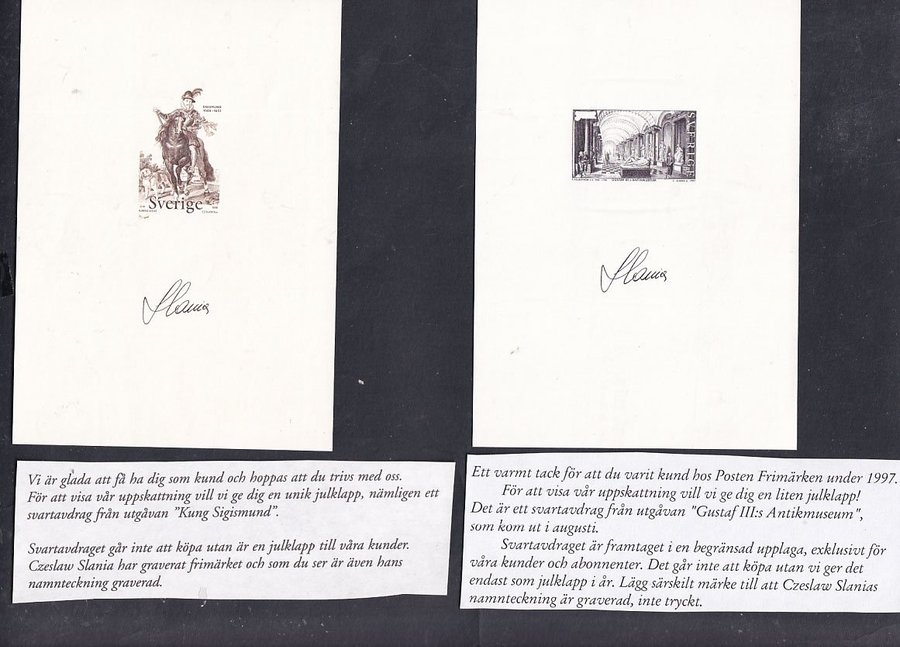 SIGISMUND
Sverige
Slania
SVERIGE
Slania
Vi är glada att få ha dig som kund och hoppas att du trivs med oss.
För att visa vår uppskattning vill vi ge dig en unik julklapp, nämligen ett
svartavdrag från utgåvan ”Kung Sigismund”.
Svartavdraget går inte att köpa utan är en julklapp till våra kunder.
Czeslaw Slania har graverat frimärket och som du ser är även hans
namnteckning graverad.
Ett varmt tack för att du varit kund hos Posten Frimärken under 1997.
För att visa vår uppskattning vill vi ge dig en liten julklapp!
Det är ett svartavdrag från utgåvan "Gustaf III:s Antikmuseum",
som kom ut i augusti.
Svartavdraget är framtaget i en begränsad upplaga, exklusivt för
våra kunder och abonnenter. Det går inte att köpa utan vi ger det
endast som julklapp i år. Lägg särskilt märke till att Czeslaw Slanias
namnteckning är graverad, inte tryckt.